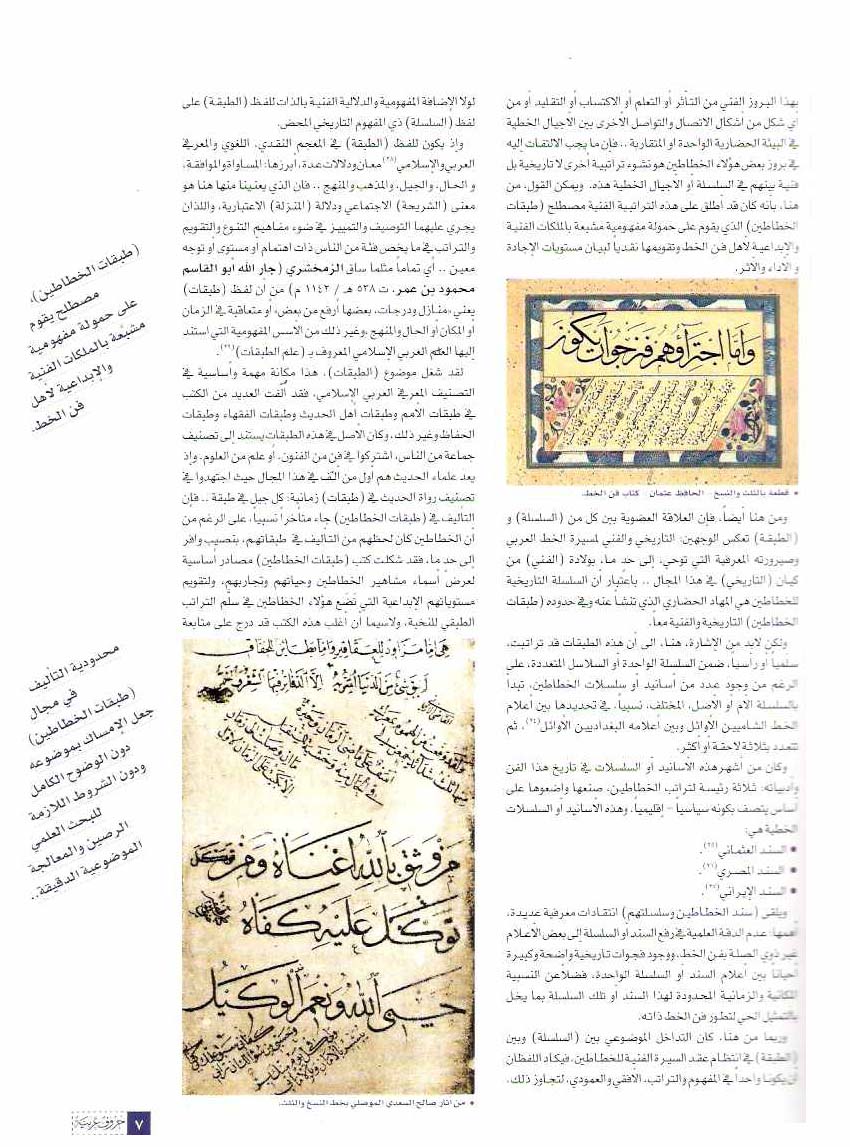 بهذا البروز الفني من التأثر أو التعلم أو الاكتساب أو التقليد أو من
أي شكل من أشكال الاتصال والتواصل الأخرى بين الأجيال الخطية
في البيئة الحضارية الواحدة أو المتقاربة .. فإن ما يجب الالتفات إليه
في بروز بعض هؤلاء الخطاطين هو نشوء تراتبية أخرى لا تاريخية بل
فنية بينهم في السلسلة أو الأجيال الخطية هذه. ويمكن القول، من
هنا، بأنه كان قد أطلق على هذه التراتبية الفنية مصطلح (طبقات
الخطاطين) الذي يقوم على حمولة مفهومية مشبعة بالملكات الفنية
والإبداعية لأهل فن الخط وتقويمها نقدياً لبيان مستويات الإجادة
والأداء والأثر.
وأما اجتراؤهم فنرجوان يكون
• قطعة بالثلث والنسخ - الحافظ عثمان - كتاب فن الخط.
ومن هنا أيضاً، فإن العلاقة العضوية بين كل من (السلسلة) و
(الطبقة) تعكس الوجهين: التاريخي والفني لمسيرة الخط العربي
وصيرورته المعرفية التي توحي، إلى حد ما، بولادة (الفني) من
كيان (التاريخي) في هذا المجال .. باعتبار أن السلسلة التاريخية
للخطاطين هي المهاد الحضاري الذي تنشأ عنه وفي حدوده (طبقات
الخطاطين) التاريخية والفنية معاً.
ولكن لابد من الإشارة، هنا، الى أن هذه الطبقات قد تراتبت،
سلمياً أو رأسياً، ضمن السلسلة الواحدة أو السلاسل المتعددة، على
الرغم من وجود عدد من أسانيد أو سلسلات الخطاطين، تبدأ
بالسلسلة الأم أو الأصل، المختلف، نسبياً، في تحديدها بين أعلام
الخط الشاميين الأوائل وبين أعلامه البغداديين الأوائل(٢٤)، ثم
تتعدد بثلاثة لاحقة أو أكثر.
وكان من أشهر هذه الأسانيد أو السلسلات في تاريخ هذا الفن
وأدبياته: ثلاثة رئيسة لتراتب الخطاطين، صنعها واضعوها على
أساس يتصف بكونه سياسياً - إقليمياً، وهذه الأسانيد أو السلسلات
الخطية هي:
• السند العثماني(٢٥).
• السند المصري(٢٦).
• السند الإيراني(٢٧).
ويلقى (سند الخطاطين وسلسلتهم) انتقادات معرفية عديدة،
أهمها: عدم الدقة العلمية في رفع السند أو السلسلة إلى بعض الأعلام
غير ذوي الصلة بفن الخط، ووجود فجوات تاريخية واضحة وكبيرة
أحياناً بين أعلام السند أو السلسلة الواحدة، فضلاً عن النسبية
المكانية والزمانية المحدودة لهذا السند أو تلك السلسلة بما يخل
بالتمثيل الحي لتطور فن الخط ذاته.
وربما من هنا، كان التداخل الموضوعي بين (السلسلة) وبين
(الطبقة) في انتظام عقد السيرة الفنية للخطاطين، فيكاد اللفظان
أن يكونا واحداً في المفهوم والتراتب، الأفقي والعمودي، لتجاوز ذلك،
لولا الإضافة المفهومية والدلالية الفنية بالذات للفظ (الطبقة) على
لفظ (السلسلة) ذي المفهوم التاريخي المحض.
وإذ يكون للفظ (الطبقة) في المعجم النقدي، اللغوي والمعرفي
العربي والإسلامي(٢٨) معان ودلالات عدة، أبرزها: المساواة والموافقة،
والحال، والجيل، والمذهب والمنهج .. فإن الذي يعنينا منها هنا هو
معنى (الشريحة) الاجتماعي ودلالة (المنزلة) الاعتبارية، واللذان
يجري عليهما التوصيف والتمييز في ضوء مفاهيم التنوع والتقويم
والتراتب في ما يخص فئة من الناس ذات اهتمام أو مستوى أو توجه
معين .. أي تماماً مثلما ساق الزمخشري (جار الله أبو القاسم
محمود بن عمر، ت ٥٣٨ هـ / ١١٤٣ م) من أن لفظ (طبقات)
يعني: منازل ودرجات، بعضها أرفع من بعض، أو متعاقبة في الزمان
أو المكان أو الحال والمنهج، وغير ذلك من الأسس المفهومية التي استند
إليها العلم العربي الإسلامي المعروف بـ (علم الطبقات)(٢٩).
لقد شغل موضوع (الطبقات)، هذا مكانة مهمة وأساسية في
التصنيف المعرفي العربي الإسلامي، فقد ألفت العديد من الكتب
في طبقات الأمم وطبقات أهل الحديث وطبقات الفقهاء وطبقات
الحفاظ وغير ذلك، وكان الأصل في هذه الطبقات يستند إلى تصنيف
جماعة من الناس، اشتركوا في فن من الفنون، أو علم من العلوم. وإذ
يعد علماء الحديث هم أول من ألف في هذا المجال حيث اجتهدوا في
تصنيف رواة الحديث في (طبقات) زمانية: كل جيل في طبقة .. فإن
التأليف في (طبقات الخطاطين) جاء متأخراً نسبياً، على الرغم من
أن الخطاطين كان لحظهم من التأليف في طبقاتهم، بنصيب وافر
إلى حد ما، فقد شكلت كتب (طبقات الخطاطين) مصادر أساسية
لعرض أسماء مشاهير الخطاطين وحياتهم وتجاربهم، ولتقويم
مستوياتهم الإبداعية التي تضع هؤلاء الخطاطين في سلم التراتب
الطبقي للنخبة، ولاسيما أن أغلب هذه الكتب قد درج على متابعة
من وثق بالله اغناه ومن
توكل عليه كفاه
حسبي الله ونعم الوكيل
• من آثار صالح السعدي الموصلي بخط النسخ والثلث.
(طبقات الخطاطين)،
مصطلح يقوم
على حمولة مفهومية
مشبعة بالملكات الفنية
والإبداعية لأهل
فن الخط.
محدودية التأليف
في مجال
(طبقات الخطاطين)
جعل الإمساك بموضوعه
دون الوضوح الكامل
ودون الشروط اللازمة
للبحث العلمي
الرصين والمعالجة
الموضوعية الدقيقة..
٧ حروف عربية